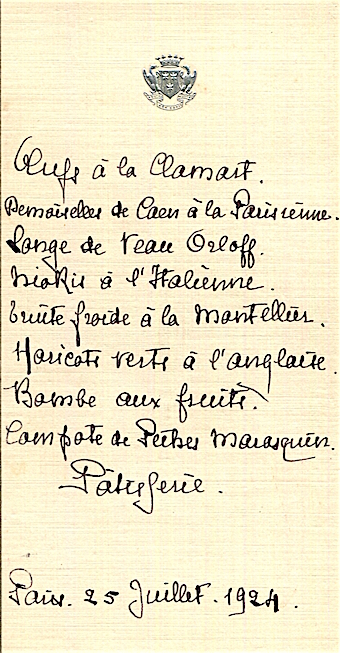 Œufs à la Clamart.
Demoiselles de Caen à la Parisienne.
Longe de Veau Orloff.
Niokis à l'Italienne.
Truite froide à la Montellier.
Haricots verts à l'anglaise.
Bombe aux fruits.
Compote de Pêches Marasquin.
Pâtisserie.
Paris. 25 Juillet. 1924.